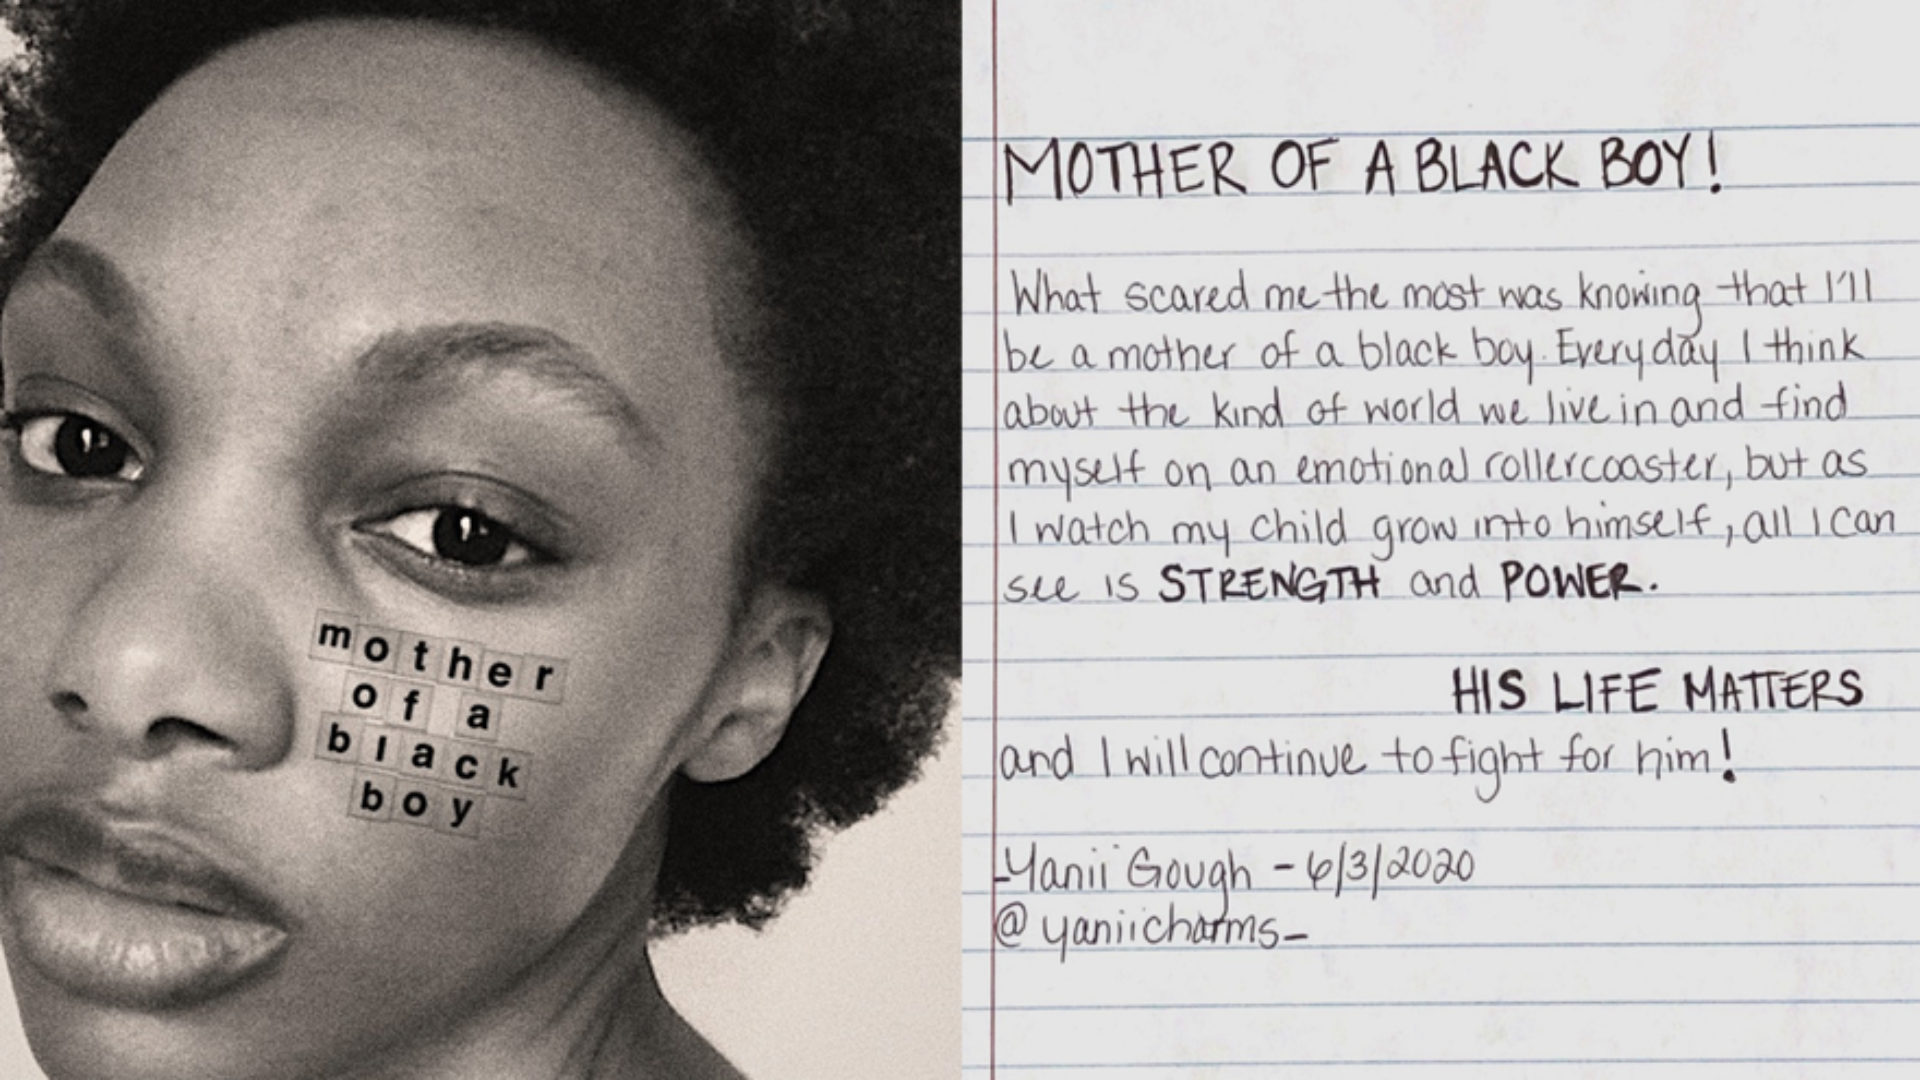 mother
of a
black
boy
MOTHER OF A BLACK BOY!
What scared me the most was knowing that I'll
be a mother of a black boy. Everyday I think
about the kind of world we live in and find
myself on an emotional rollercoaster, but as
I watch my child grow into himself, all I can
see is STRENGTH and POWER.
HIS LIFE MATTERS
and I will continue to fight for him!
-Yanii Gough - 6/3/2020
@yaniicharms_